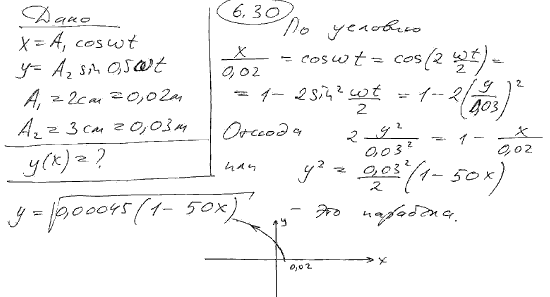 Дано
x = A₁ cos ωt
y = A₂ sin 0,5ωt
A₁ = 2см = 0,02м
A₂ = 3см = 0,03м
y(x) = ?
6.30
По условию
x/0,02 = cos ωt = cos(2 ωt/2) =
= 1 - 2sin² ωt/2 = 1 - 2(y/0,03)²
Отсюда 2 y²/0,03² = 1 - x/0,02
или y² = 0,03²/2 (1 - 50x)
y = √(0,00045(1 - 50x)) - это парабола.
y
0,02
x